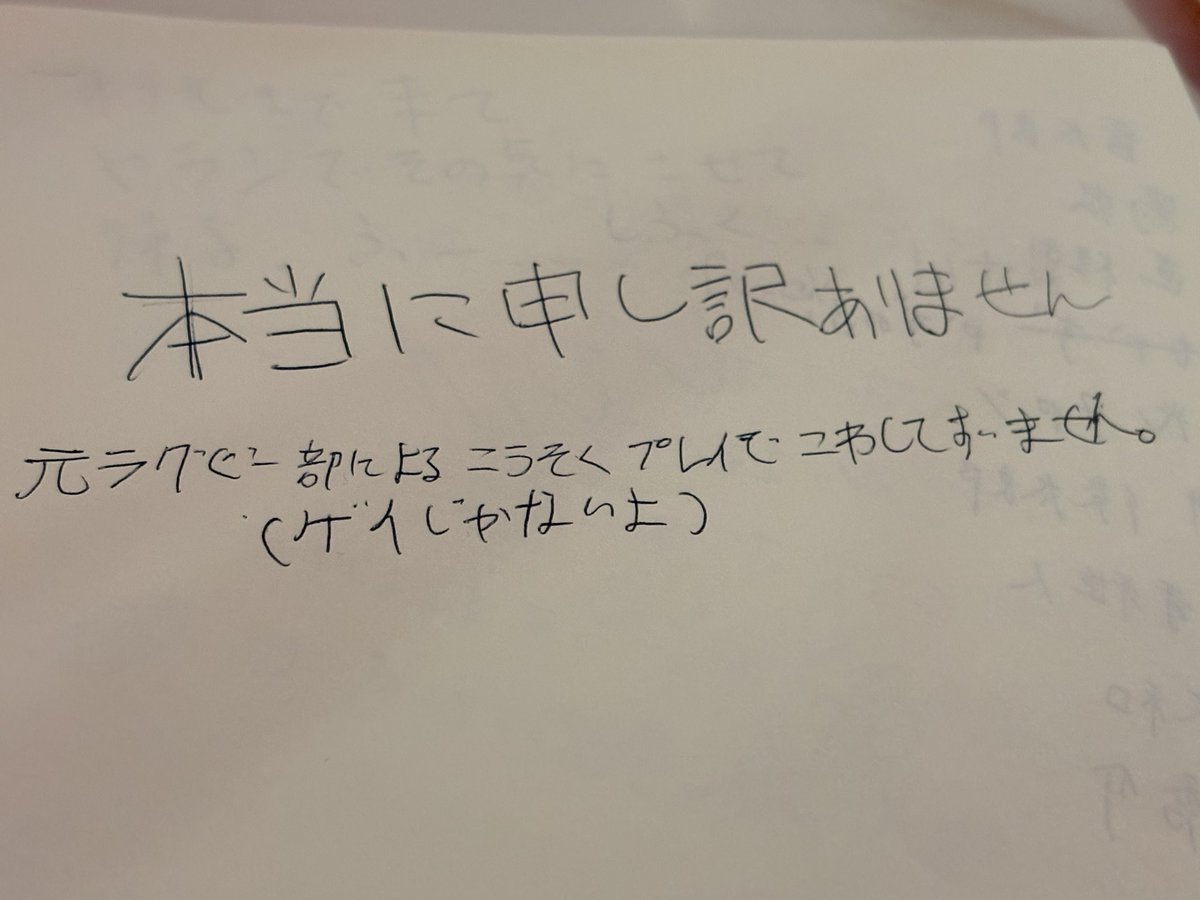 本当に申し訳ありません
元ラグビー部によるこうそくプレイでこわしてすいません。
(ゲイじゃないよ)